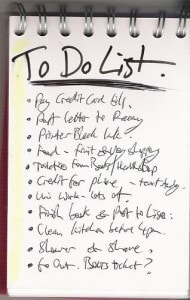 To Do List.
• Pay Credit Card bill.
• Post letter to
• Printer Black Ink.
• Food - fruit & veg shopping
• Toiletries from Boots/
• Credit for phone - text
• Uni work - lots of.
• Finish book & post to Lisa.
• Clean kitchen before 6pm.
• Shower & shave.
• Go Out. ticket?